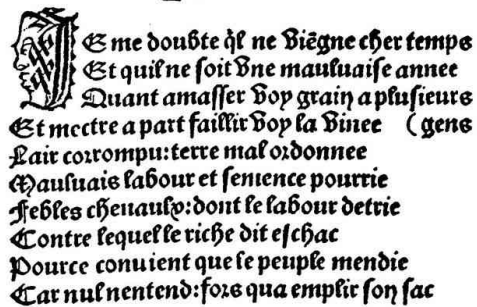 IE me doubte q̃l ne viẽgne cher temps
Et quil ne soit vne mauluaise annee
Quant amasser voy grain a plusieurs
Et mectre a part faillir voy la vinee (gens
Lair corrompu:terre mal ordonnee
Mauluais labour et semence pourrie
Febles cheuaulx:dont le labour detrie
Contre lequel le riche dit eschac
Pource conuient que le peuple mendie
Car nul nentend:fors qua emplir son sac